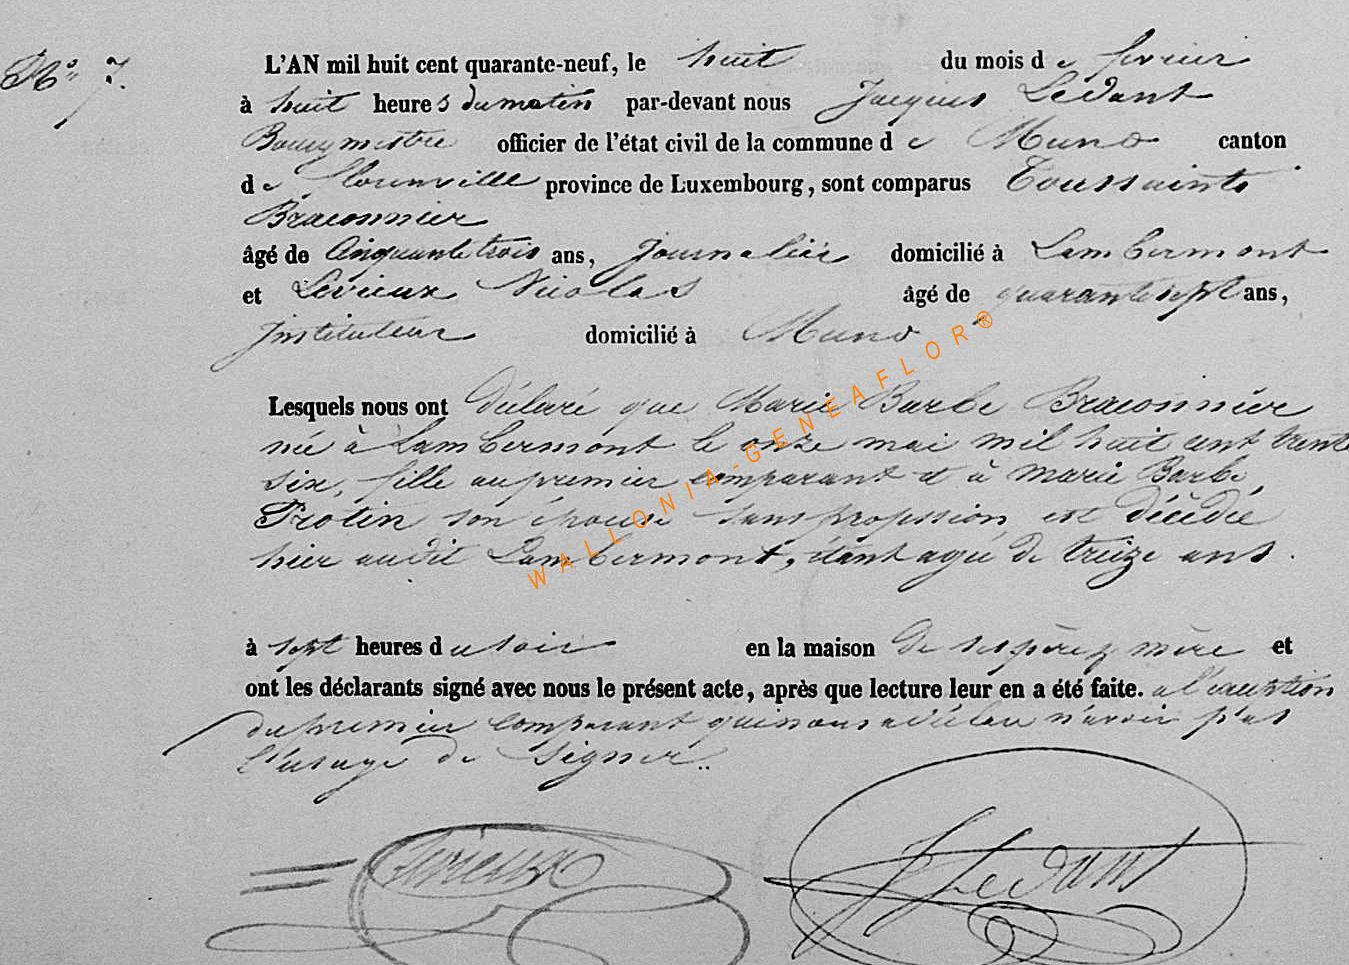 N° 7.
L'AN mil huit cent quarante-neuf, le huit du mois de fevrier
à huit heures du matin par-devant nous Jacques Lédant
Bourgmestre officier de l'état civil de la commune de Muno canton
de Florenville province de Luxembourg, sont comparus Toussaints
Braconnier
âgé de Cinquante trois ans, journalier domicilié à Lambermont
et Lévieux Nicolas âgé de quarante sept ans,
Instituteur domicilié à Muno
Lesquels nous ont déclaré que Marie Barbe Braconnier
née à Lambermont le onze mai mil huit cent trente
six, fille au premier comparant et à Marie Barbe
Protin son épouse sans profession est décédée
hier audit Lambermont, étant agée de treize ans.
à sept heures du soir en la maison de ses père & mère et
ont les déclarants signé avec nous le présent acte, après que lecture leur en a été faite. a l'exeption
du premier comparant qui nous a déclaré n'avoir pas
l'usage de signer.
Lévieux
J Lédant
WALLONIA-GENEAFLOR®